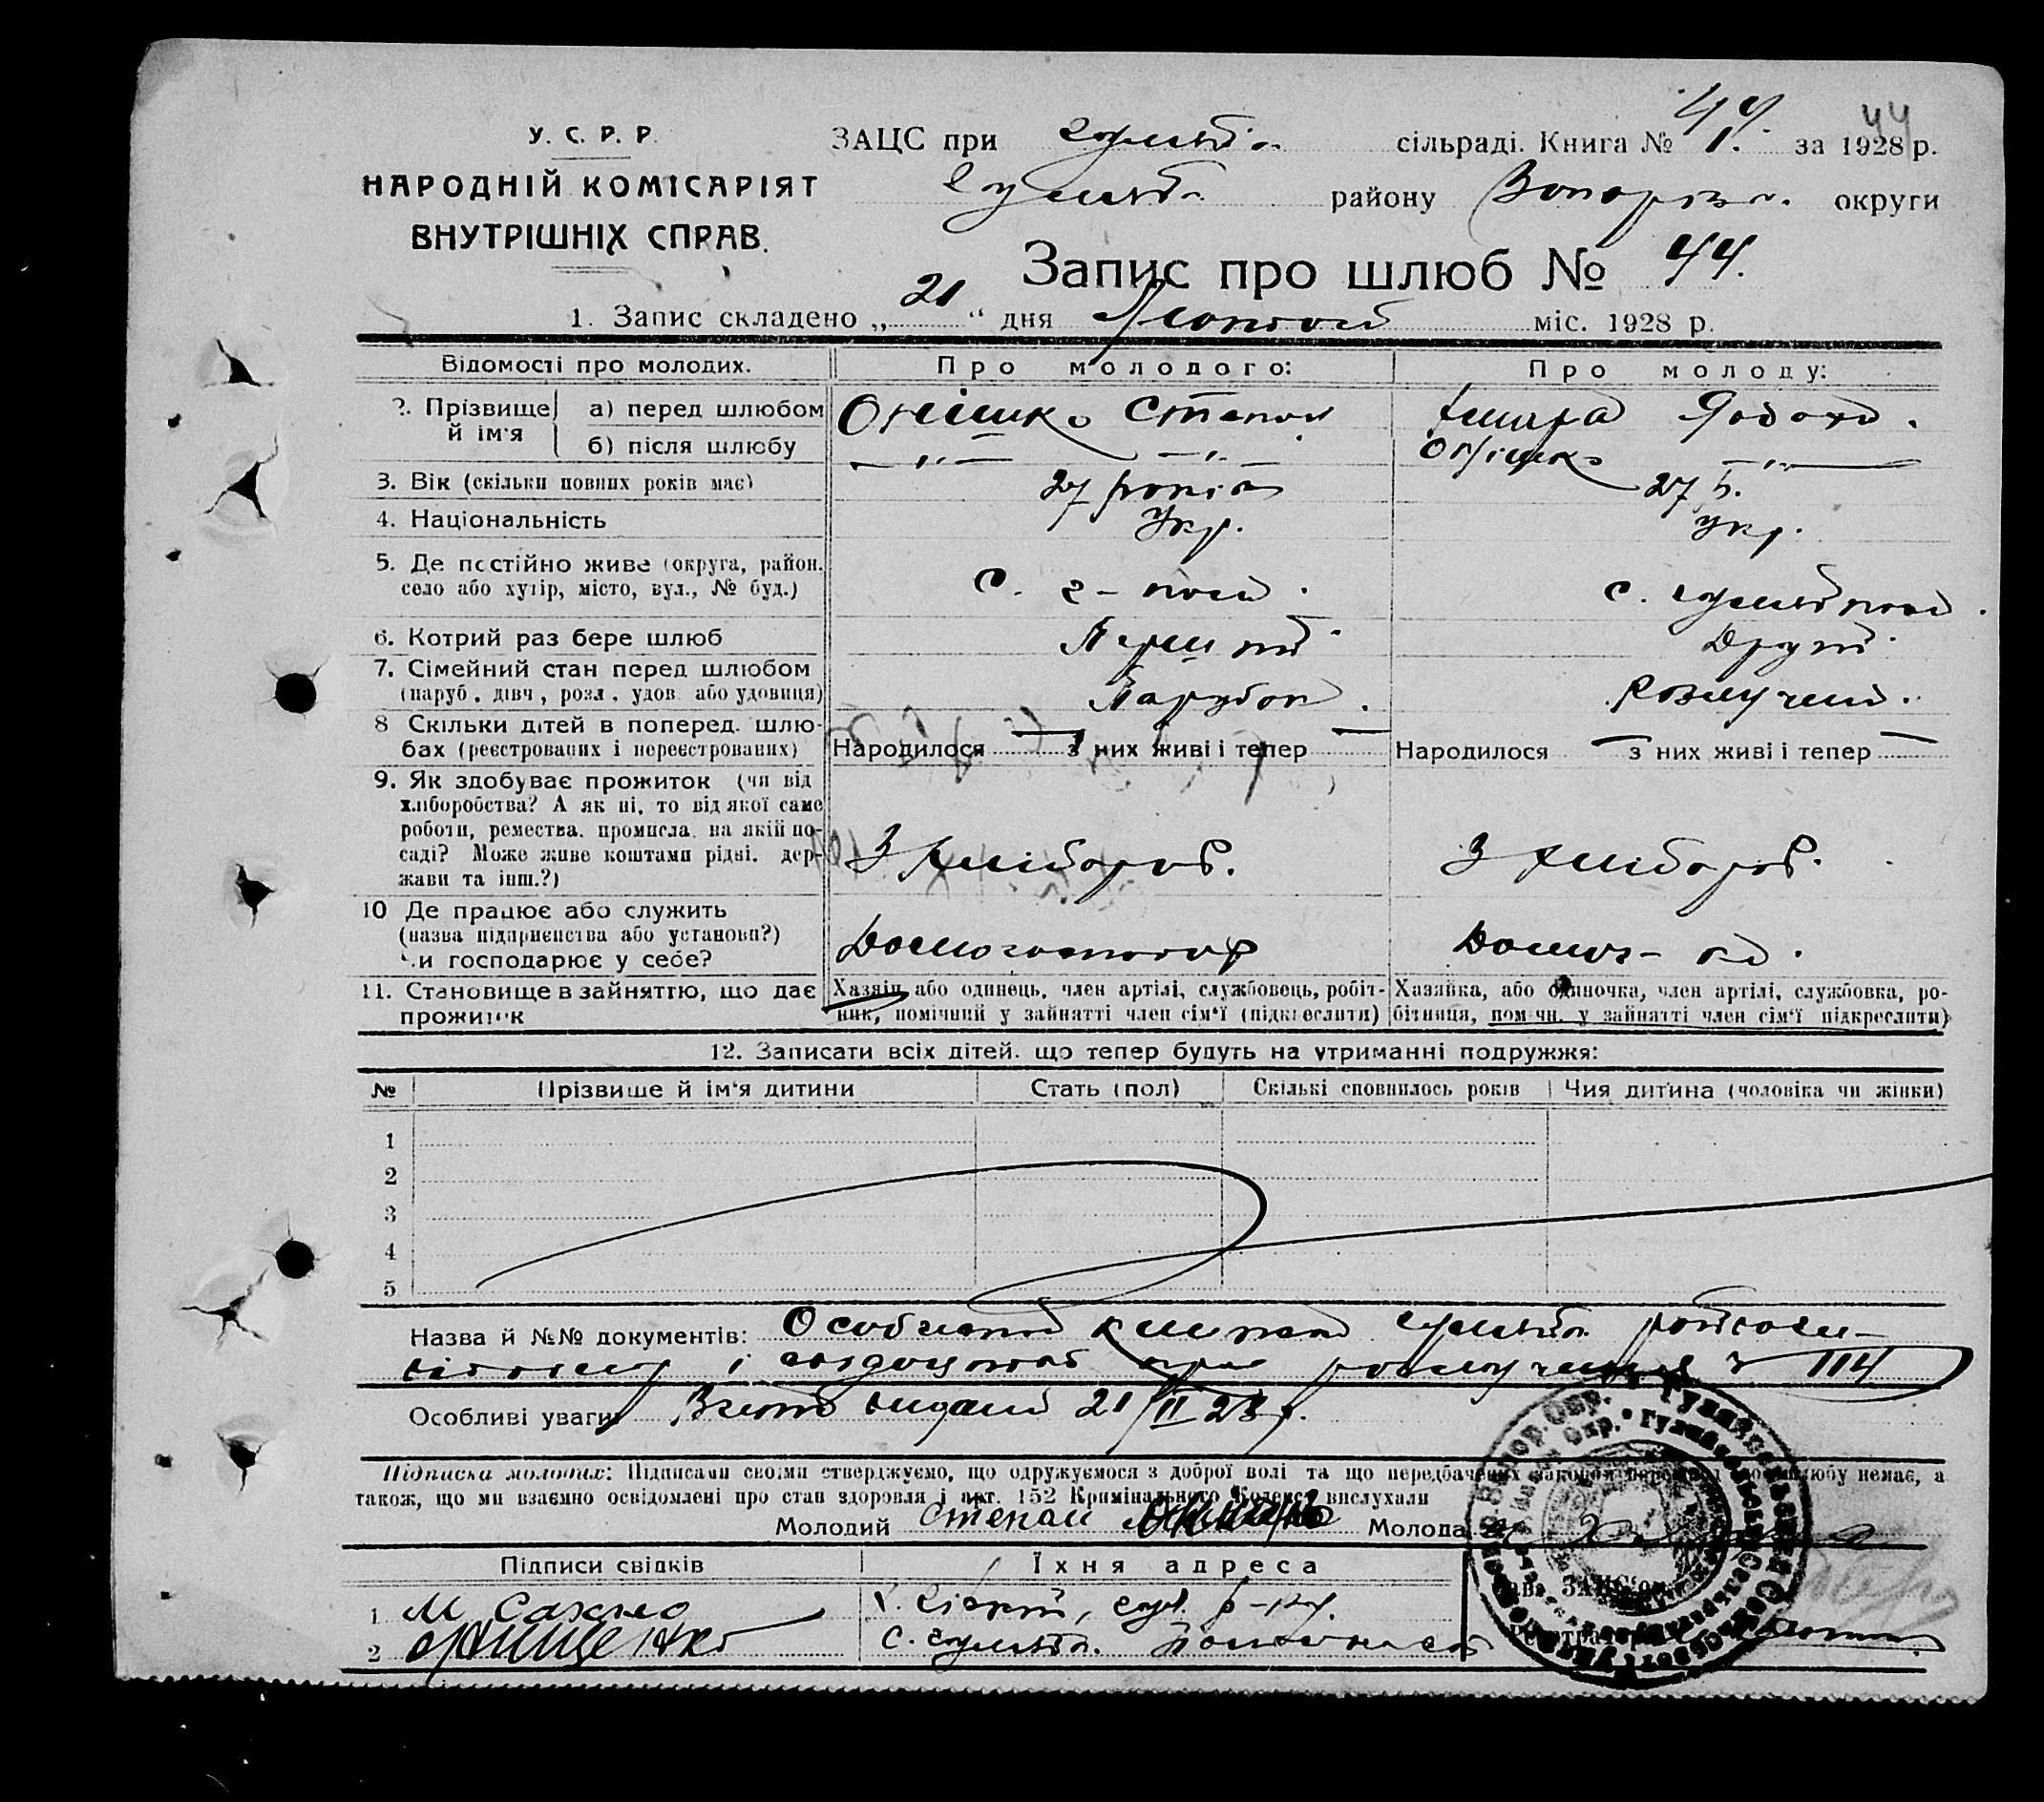 У. С. Р. Р.
НАРОДНІЙ КОМІСАРІЯТ
ВНУТРІШНІХ СПРАВ.
ЗАЦС при сільраді. Книга № 1. за 1928 р.
44
району Запорізь. округи
Запис про шлюб № 44.
1. Запис складено „ 21 “ дня Лютого міс. 1928 р.
Відомості про молодих.
Про молодого:
Про молоду:
2. Прізвище й ім'я
а) перед шлюбом
Онішко Степан
Хмара
б) після шлюбу
— „ — — „ —
Онішко — „ —
3. Вік (скільки повних років має)
27 років
27 р.
4. Національність
Укр.
Укр.
5. Де постійно живе (округа, район,
село або хутір, місто, вул., № буд.)
с. г-поль.
с. гуляйполе.
6. Котрий раз бере шлюб
Перший
Другий
7. Сімейний стан перед шлюбом
(паруб., дівч, розл., удов. або удовиця)
Парубок.
Розлучена.
8 Скільки дітей в поперед. шлю-
бах (реєстрованих і нереєстрованих)
Народилося — з них живі і тепер —
Народилося — з них живі і тепер —
9. Як здобуває прожиток (чи від
хліборобства? А як ні, то від якої саме
роботи, ремества, промисла, на якій по-
саді? Може живе коштами рідні, дер-
жави та інш.?)
З хлібороб.
З хлібороб.
10 Де працює або служить
(назва підприємства або установи?)
Чи господарює у себе?
Домогосподар
Домог-ка.
11. Становище в зайняттю, що дає
прожиток
Хазяїн або одинець, член артілі, службовець, робіт-
ник, помічний у зайнятті член сім'ї (підкреслити)
Хазяйка, або одиночка, член артілі, службовка, ро-
бітниця, помічн. у зайнятті член сім'ї підкреслити)
12. Записати всіх дітей, що тепер будуть на утриманні подружжя:
№ Прізвище й ім'я дитини Стать (пол) Скількі сповнилось років Чия дитина (чоловіка чи жінки)
1
2
3
4
5
Назва й №№ документів: Особистой книжкой
і про розлучення
Особливі уваги: видано 21/II 28 р.
Підписка молодих: Підписами своїми стверджуємо, що одружуємося з доброї волі та що передбачених законом перешкод до шлюбу немає, а
також, що ми взаємно освідомлені про стан здоровля і арт. 152 Кримінального Кодексу вислухали
Молодий Степан Онішко Молода
Підписи свідків
Їхня адреса
Зав. ЗАЦС'ом
1 М Сахно
2 Онищенко
Реєстратор